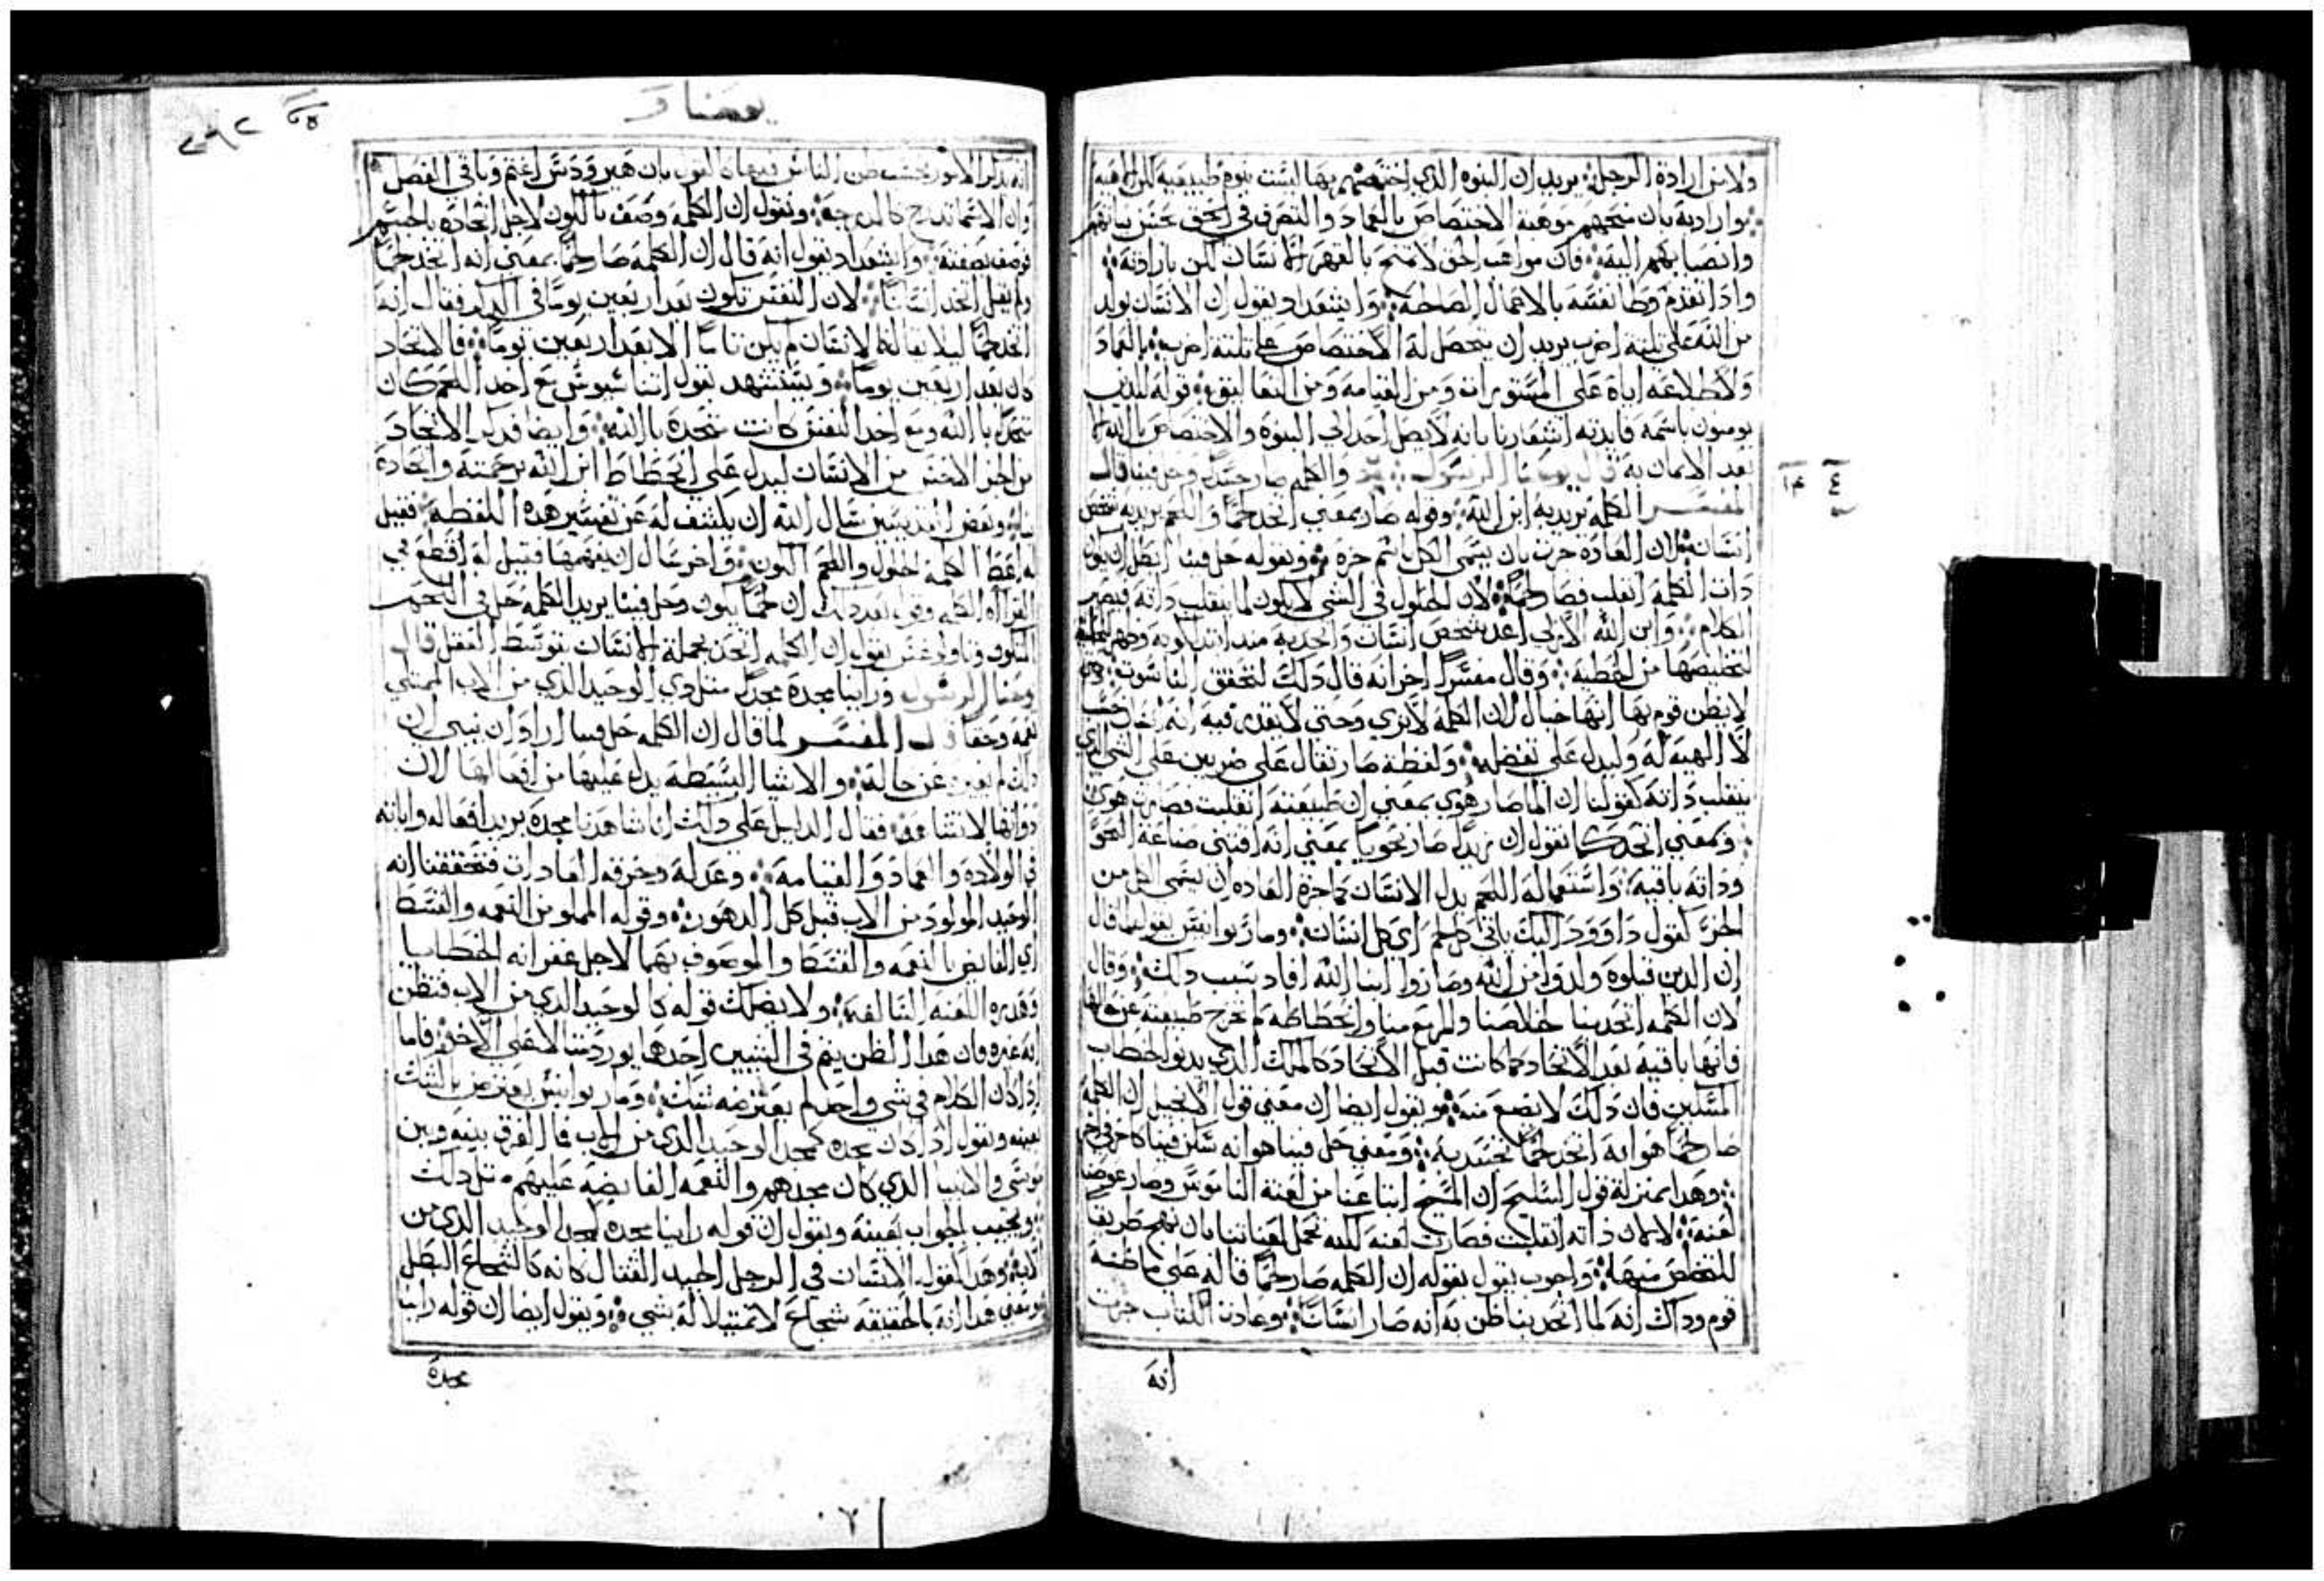 ولا من ارادة الرجل يريد ان البنوه الذي اختصهم بها ليست بنوه طبيعيه لكن الاهيه
وارادية بان منحهم موهبة الاختصاص بالعماد والتصرف في الحق بحسن نياتهم
وانصبابهم اليه فان مواهب الحق لا تمنح بالقهر الانسان لكن بارادته
واذا تقدم ووطا نفسه بالاعمال الصالحة وايشعداد يقول ان الانسان يولد
من الله على ثلثة اضرب يريد ان يتحصل له الاختصاص على ثلثة اضرب بالعماد
ولاطلاعه اياه على المستورات ومن القيامه ومن النعاليق قوله للذين
يومنون باسمه فايدته اشعارنا بانه لا يصل احد الي البنوة والاختصاص بالله
بعد الايمان به قال يوحنا الرسول والكلمه صار جسدا وحل فينا قال
المفسر الكلمه يريد به ابن الله وقوله صار بمعني اتخد لحما واللحم يريد به شخص
انسان لان العاده جرت بان يسمى الكل باسم جزه وبقوله حل فينا ابطل ان يكون
ذات الكلمه انقلب فصار لحما لان الحلول في الشي لا يكون لما ينقلب ذاته فيصير
الكلام وابن الله الازلي اعد شخص انسان واتحد به منذ ابتدا كونه
لتخليصها من الخطيه وقال مفسرا اخر انه قال ذلك لتحقق الناسوت
لا يظن قوم بها انها خيال لان الكلمة لا يرى وحتي لا يقدر فيه انه انسان حسب
لا الهيه له وليدل على تفضله ولفظة صار تقال على ضربين على الشي الذي
ينقلب ذاته كقولنا ان الما صار هوى بمعني ان طبيعته انقلبت فصارت هوى
وبمعني اتحد كما نقول ان زيدا صار نحويا بمعني انه اقتنى صناعة النحو
وذاته باقيه واستعماله اللحم بدل الانسان كما جرة العاده ان يسمى الكل من
الجز كقول داوود اليك ياتي كل لحم اي كل انسان ومار يوانيس يقول لما قال
ان الذين قبلوه ولدوا من الله وصاروا ابنا الله افاد بسبب ذلك وقال
لان الكلمه اتحد بنا لخلاصنا وليرتفع منا وانحطاطه لم تخرج طبيعته عن حالها
فانها باقيه بعد الاتحاد كما كانت قبل الاتحاد كالملك الذي يدنو لخطاب
المسكين فان ذلك لا يضع منه ويقول ايضا ان معني قول الانجيل ان الكلمة
صار لحما هو انه اتخد لحما تجسد به ومعني حل فينا هو انه سكن فينا
وهدا بمنزلة قول السليح ان المسيح ابتاعنا من لعنة الناموس وصار عوضنا
لعنة لا لان ذاته انقلبت فصارت لعنه لكنه تحمل لعناتنا بان نهج طريقا
للتخلص منها واجوب يقول بقوله ان الكلمه صار لحما قاله على ما ظنه
قوم وذاك انه لما اتحد بنا ظن به انه صار انسانا وعادة الكتاب جرت
انه
يوحنا
انه يذكر الامور بحسب ظن الناس فيها كالقول بان هيرودس اغتم وباقي الفصل
وان الاتما تدبح كالدبيحه ونقول ان الكلمه وصف بالكون لاجل اتحاده باجسم
فوصف بصفته وايشعداد يقول انه قال ان الكلمة صار لحما بمعني انه اتخد لحما
ولم يقل اتخد انسانا لان النفس تكون بعد اربعين يوما في البدن فقال انه
اتخد لحما ليلا يقال كما الانسان لم يكن تاما الا بعد اربعين يوما فالاتحاد
كان بعد اربعين يوما ويستشهد بقول اثناسيوس مع اخد اللحم كان
متحدا بالله ومع اخد النفس كانت متحدة بالله وايضا فذكر الاتحاد
من الجز الاخس من الانسان ليدل على انحطاط ابن الله برحمته واتحاده
بنا وبعض القديسين سال الله ان يكشف له عن تفسير هذه اللفظه فقيل
له اعط الكلمة الحلول واللحم الكون واخر سال ان يفهمها فقيل له اقطع في
القراه الكلمه وقول بعد ذلك ان لحما يكون وحل فينا يريد الكلمه حل في اللحم
المتكون وغريغوريوس يقول ان الكلمه اتحد بجملة الانسان بتوسط العقل قال
يوحنا الرسول وراينا مجده مجدا مثل دي الوحيد الذي من الاب الممتلي
نعمه وحقا قال المفسر لما قال ان الكلمه حل فينا اراد ان يبين ان
ذلك لم يغيره عن حاله والاشيا البسيطه يدل عليها من افعالها لان
ذواتها لا تشاهد فقال الدليل على ذلك اننا شاهدنا مجده يريد افعاله واياته
في الولاده والعماد والقيامه وعدله وخرقه العادات فتحققنا انه
الوحيد المولود من الاب قبل كل الدهور وقوله المملو من النعمه والقسط
اي الفايض بالنعمه والقسط والموصوف بهما لاجل غفرانه الخطايا
وتقديره اللعنه السالفه ولا يضلك قوله كالوحيد الذي من الاب فتظن
انه غيره فان هدا الظن يتم في الشيين احدهما يورد مثالا على الاخر فاما
اذا كان الكلام في شي واحد لم يعترضه شك ومار يوانيس يعترض بالشك
بعينه ويقول اذا كان مجده كمجد الوحيد الذي من الاب فما الفرق بينه وبين
موسى والانبيا الذي كان مجدهم والنعمه الفايضه عليهم مثل ذلك
ويجيب الجواب بعينه ويقول ان قوله راينا مجده كمجد الوحيد الذي من
ابيه وهدا كقول الانسان في الرجل الجيد القتال كانه كالشجاع البطل
ويعني هدا انه بالحقيقه شجاع لا تمثيلا له بشي ويقول ايضا ان قوله راينا
مجده